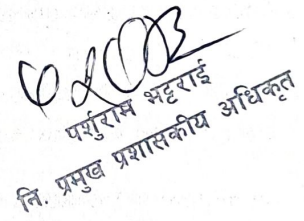 पर्शुराम भट्टराई
नि. प्रमुख प्रशासकीय अधिकृत